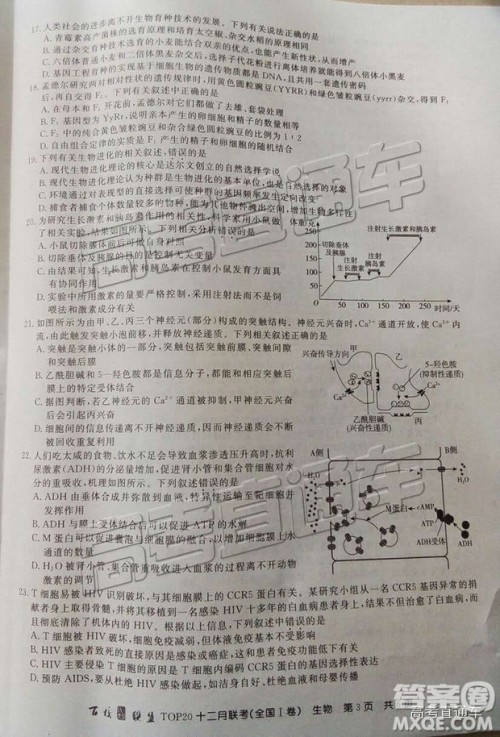 17. 人类社会的进步离不开生物育种技术的发展。下列有关说法正确的是
A. 青霉素高产菌株的选育原理和培育太空椒、杂交水稻的原理相同
B. 通过杂交育种技术选育的小麦能结合双亲的优点,也能使后代增产
C. 六倍体普通小麦和二倍体黑麦杂交后,
D. 基因工程育种的实现基于细胞生物的遗传物质都是DNA,且共用一套遗传密码
18. 孟德尔研究两对相对性状的遗传规律时,用黄色圆粒豌豆(YYRR)和绿色皱粒豌豆(yyrr)杂交,得到F₁
后,再自交得F₂。下列有关叙述中正确的是
A. 在母本和F₁开花前,孟德尔对它们做了去雄、套袋处理
B. F₁的基因型为YyRr,
C. F₂中的纯合黄色皱粒豌豆和杂合绿色圆粒豌豆的比例为1∶2
D. 自由组合定律的实质是F₁产生的不同种类的精子和卵细胞的随机结合
19. 下列有关生物进化的叙述,错误的是
A. 现代生物进化理论的核心是达尔文创立的自然选择学说
B. 现代生物进化理论认为种群是生物进化的基本单位,也是自然选择的直接对象
C. 环境通过对表现型的直接选择可使种群的基因频率发生定向改变
D. 生物进化的过程实际上是生物与生物、生物与无机环境共同进化的过程
20. 为研究生长激素和胰岛素的作用及相互关系,科学家用小鼠做
了相关实验,结果如图所示。下列相关分析错误的是
A. 小鼠切除胰体前后可做自身对照
B. 切除胰及垂体的目的是排除内源激素的影响
C. 由结果可知,生长激素和胰岛素在控制小鼠生长发育方面具
有协同作用
D. 实验中所用激素的量要严格控制,采用注射法而不是饲喂法
与激素成分有关
体重/g
切除垂体及胰腺
注射生长激素
注射胰岛素
注射生长激素、胰岛素
300
250
200
150
100
50
0 50 100 150 200 250 时间/天
21. 如图所示为由甲、乙、丙三个神经元(部分)构成的突触结构。神经元兴奋时,Ca²⁺通道开放,使Ca²⁺内
流,由此触发突触小泡前移,并释放神经递质。下列叙述正确的是
A. 突触是由两个神经元构成的,一般一个突触包括突触前膜、突触间隙
和突触后膜
B. 乙酰胆碱和5-羟色胺都是信息分子,都能和相应突触后
膜上的特定受体结合
C. 据图判断,若乙神经元的Ca²⁺通道被抑制,甲神经元的兴奋
会引起丙兴奋
D. 细胞间的信息传递离不开神经递质,但神经递质不会被细胞
回收重复利用
兴奋传导方向
甲
乙
5-羟色胺
(抑制性递质)
Ca²⁺
Ca²⁺
乙酰胆碱
(兴奋性递质)
丙
22. 人们吃太咸的食物、饮水不足会导致血浆渗透压升高时,抗利
尿激素(ADH)的分泌量增加,促进肾小管和集合管细胞对水分
的重吸收,机理如图所示。下列叙述正确的是
A. ADH由垂体合成并弥散到血液,特异性地运输至靶细胞并
发挥作用
B. ADH与膜上受体结合后可以促进ATP的水解
C. M蛋白可以调控囊泡与细胞膜的融合,以增加细胞膜上水
通道的数量
D. H₂O被肾小管、集合管重吸收进入血浆的过程离不开神经
的调节
A侧
B侧
H₂O
H₂O
M蛋白
cAMP
ATP
ADH
ADH受体
23. T细胞易被HIV识别破坏,与其细胞膜上的CCR5蛋白有关。某研究小组从一名CCR5基因异常的捐
献者身上取得骨髓,并将其移植到一名感染HIV十多年的白血病患者身上,结果不但治愈了白血病,而
且彻底清除了机体内的HIV。下列叙述错误的是
A. T细胞被HIV破坏后,体液免疫不受影响
B. HIV感染者死亡的直接原因是感染或癌症,这与患者的获得性免疫缺陷有关
C. HIV主要侵染T细胞的原因可能是T细胞表面有相应的CCR5蛋白
D. 预防AIDS,要从杜绝HIV传播途径、减少与HIV患者体液接触等方面做起
百校 联盟 TOP20 十二月联考(全国Ⅰ卷) 生物 第3页 共
高考直通车
高考直通车
答案圈
高考直通车